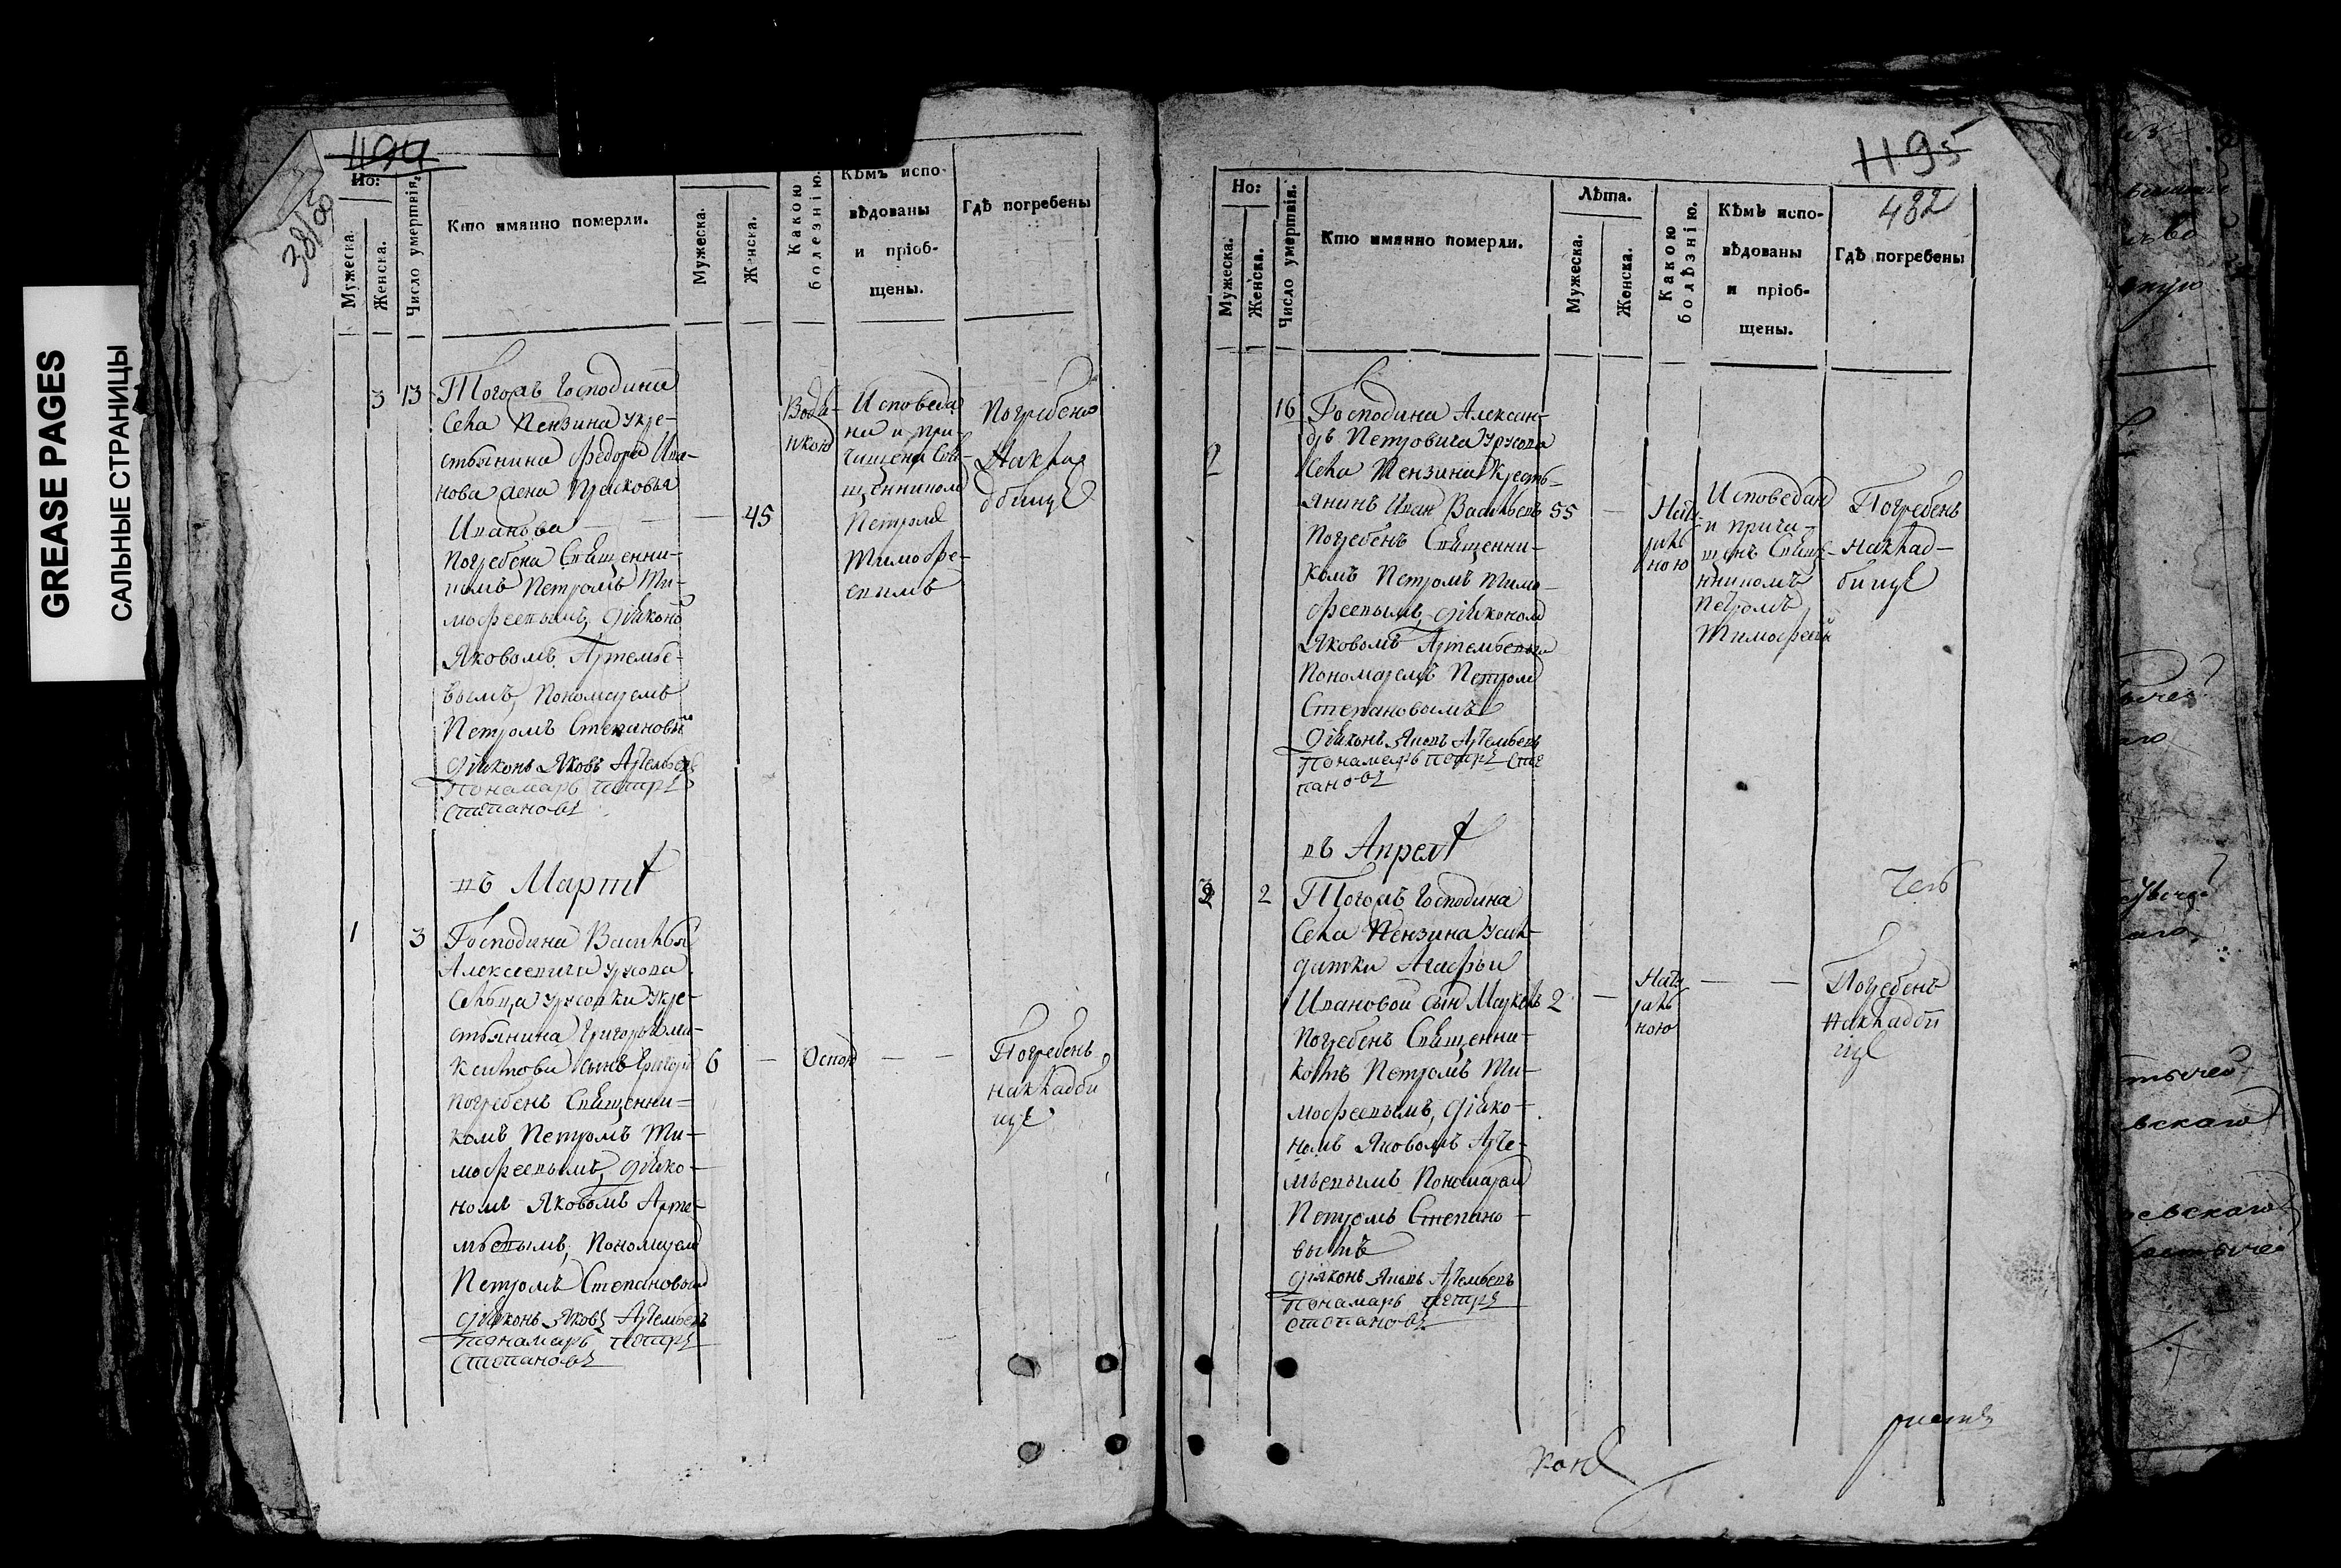 GREASE PAGES
САЛЬНЫЕ СТРАНИЦЫ
1194
Но:
Мужеска.
Женска.
Число умертвія.
Кто имянно померли.
Мужеска.
Женска.
Какою болезнію.
Кѣмъ испо-
вѣдованы
и пріоб-
щены.
Гдѣ погребены
3
13
Тогожъ Господина
Села Пензина укре-
стьянина Федора Ива-
нова жена Прасковья
Иванова
45
погребена Священни-
комъ Петромъ Ти-
мофеевымъ, діяконо
Яковомъ Артемье-
вымъ, пономаремъ
Петромъ Степановы
діяконъ Яковъ Артемьевъ
Пономарь петръ
Степановъ
Водя-
ною
Исповеда
на и при-
чащена Свя-
щенником
Петром
Тимофе-
евымъ
Погребена
Накла
дбище
въ Мартѣ
1
3
Господина Василья
Алексеевича Урусова
Сельца Урусовки укре-
стьянина Григорья Ми-
китова сынъ Григорі
6
Оспою
погребенъ Священни-
комъ Петромъ Ти-
мофеевымъ, діяко-
номъ Яковомъ Арте-
мьевымъ, Пономарем
Петромъ Степановым
діяконъ Яковъ Артемьевъ
Пономарь петръ
Степановъ
Погребенъ
накладби
ще
1195
482
Но:
Мужеска.
Женска.
Число умертвія.
Кто имянно померли.
Лѣта.
Мужеска.
Женска.
Какою болѣзнію.
Кѣмъ испо-
вѣдованы
и пріоб-
щены.
Гдѣ погребены
2
16
Господина Алексан-
дра Петровича Урусова
Села Пензина Кресть-
янинъ Иван Васильевъ
55
погребенъ Священни-
комъ Петромъ Тимо-
феевымъ, діяконом
Яковомъ Артемьевым
Пономаремъ Петром
Степановымъ
діяконъ Яковъ Артемьевъ
Пономарь петръ Сте
пановъ
Нату
раль
ною
Исповедан
и прича-
щенъ Свяще-
нникомъ
Петромъ
Погребенъ
наклад-
бище
въ Апрелѣ
3
2
Тогожъ Господина
Села Пензина усол-
датки Агафьи
Ивановой сын Маркелъ
2
погребенъ Священни-
комъ Петромъ Ти-
мофеевымъ, діяко-
номъ Яковомъ Арте-
мьевымъ Пономарем
Петромъ Степано-
вымъ
діяконъ Яковъ Артемьевъ
Пономарь петръ
степановъ
Нату
раль
ною
Погребенъ
накладби
ще